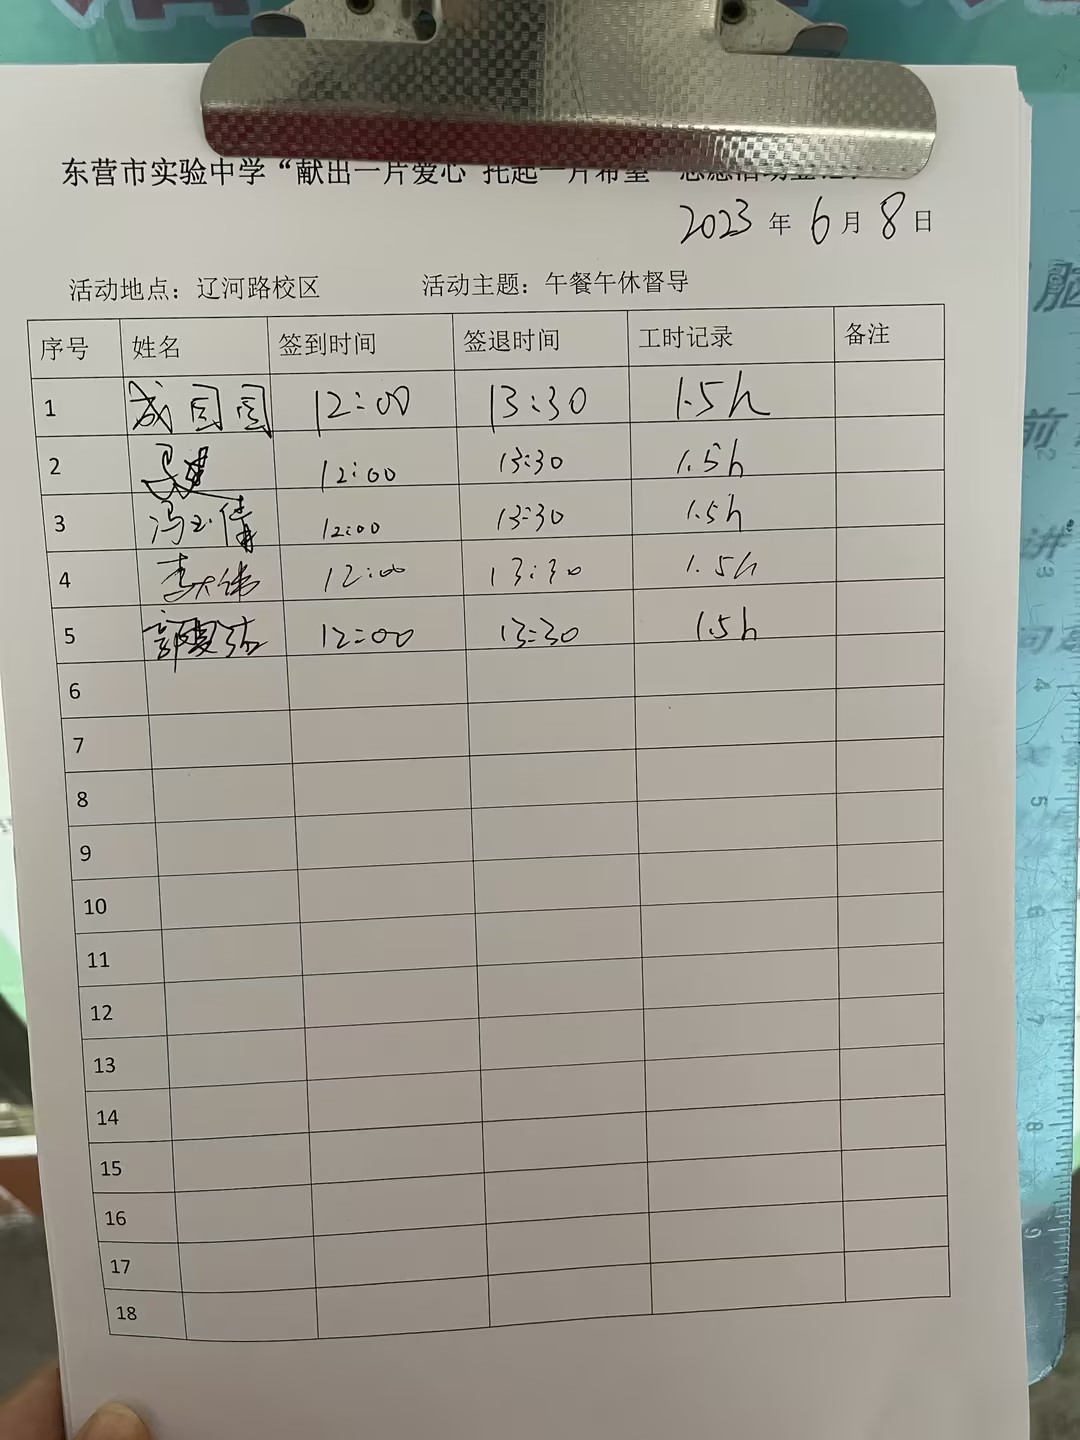 东营市实验中学“献出一片爱心 托起一片希望”志愿活动登记
2023 年 6 月 8 日
活动地点：辽河路校区 活动主题：午餐午休督导
序号 姓名 签到时间 签退时间 工时记录 备注
1 成国国 12:00 13:30 1.5h
2 12:00 13:30 1.5h
3 冯玉倩 12:00 13:30 1.5h
4 李大伟 12:00 13:30 1.5h
5 12:00 13:30 1.5h
6
7
8
9
10
11
12
13
14
15
16
17
18
脑
前
2
讲
3
问
4
5
6
7
8
9